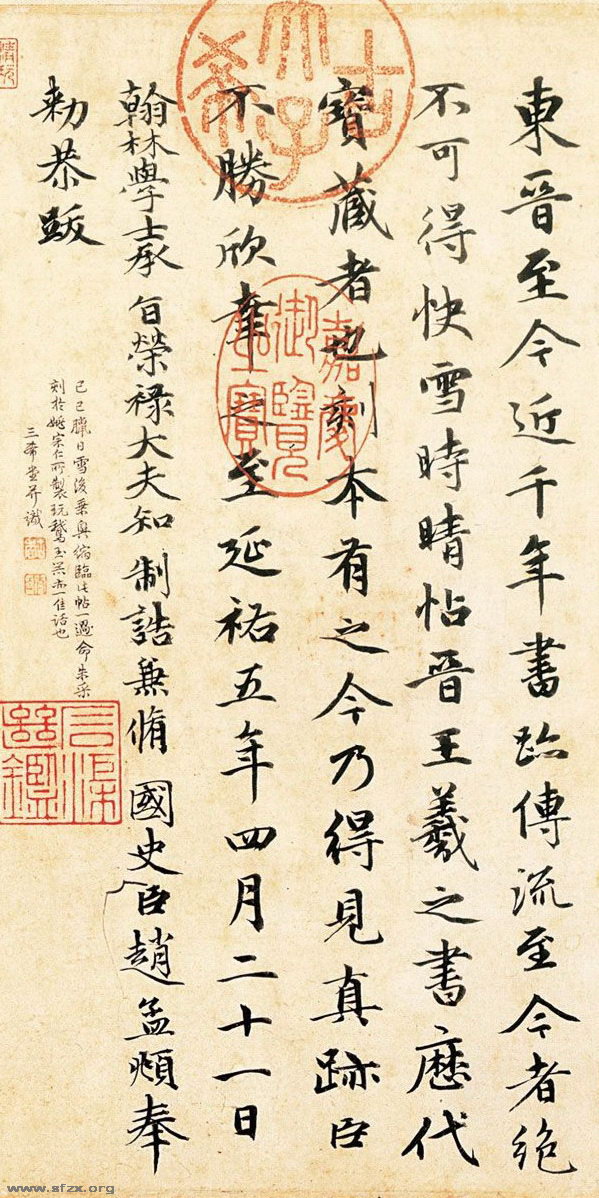 東晉至今近千年書跡傳流至今者絶
不可得快雪時晴帖晉王羲之書歷代
寶藏者也刻本有之今乃得見真跡臣
不勝欣幸之至延祐五年四月二十一日
翰林學士承旨榮祿大夫知制誥兼脩國史臣趙孟頫奉
勑恭跋
己巳臘日雪後乘興縮臨此帖一過命朱采
刻於姚宗仁所製玩鵞玉器亦一佳話也
三希堂并識
古希天子
嘉慶御覽之寶
www.sfzx.org